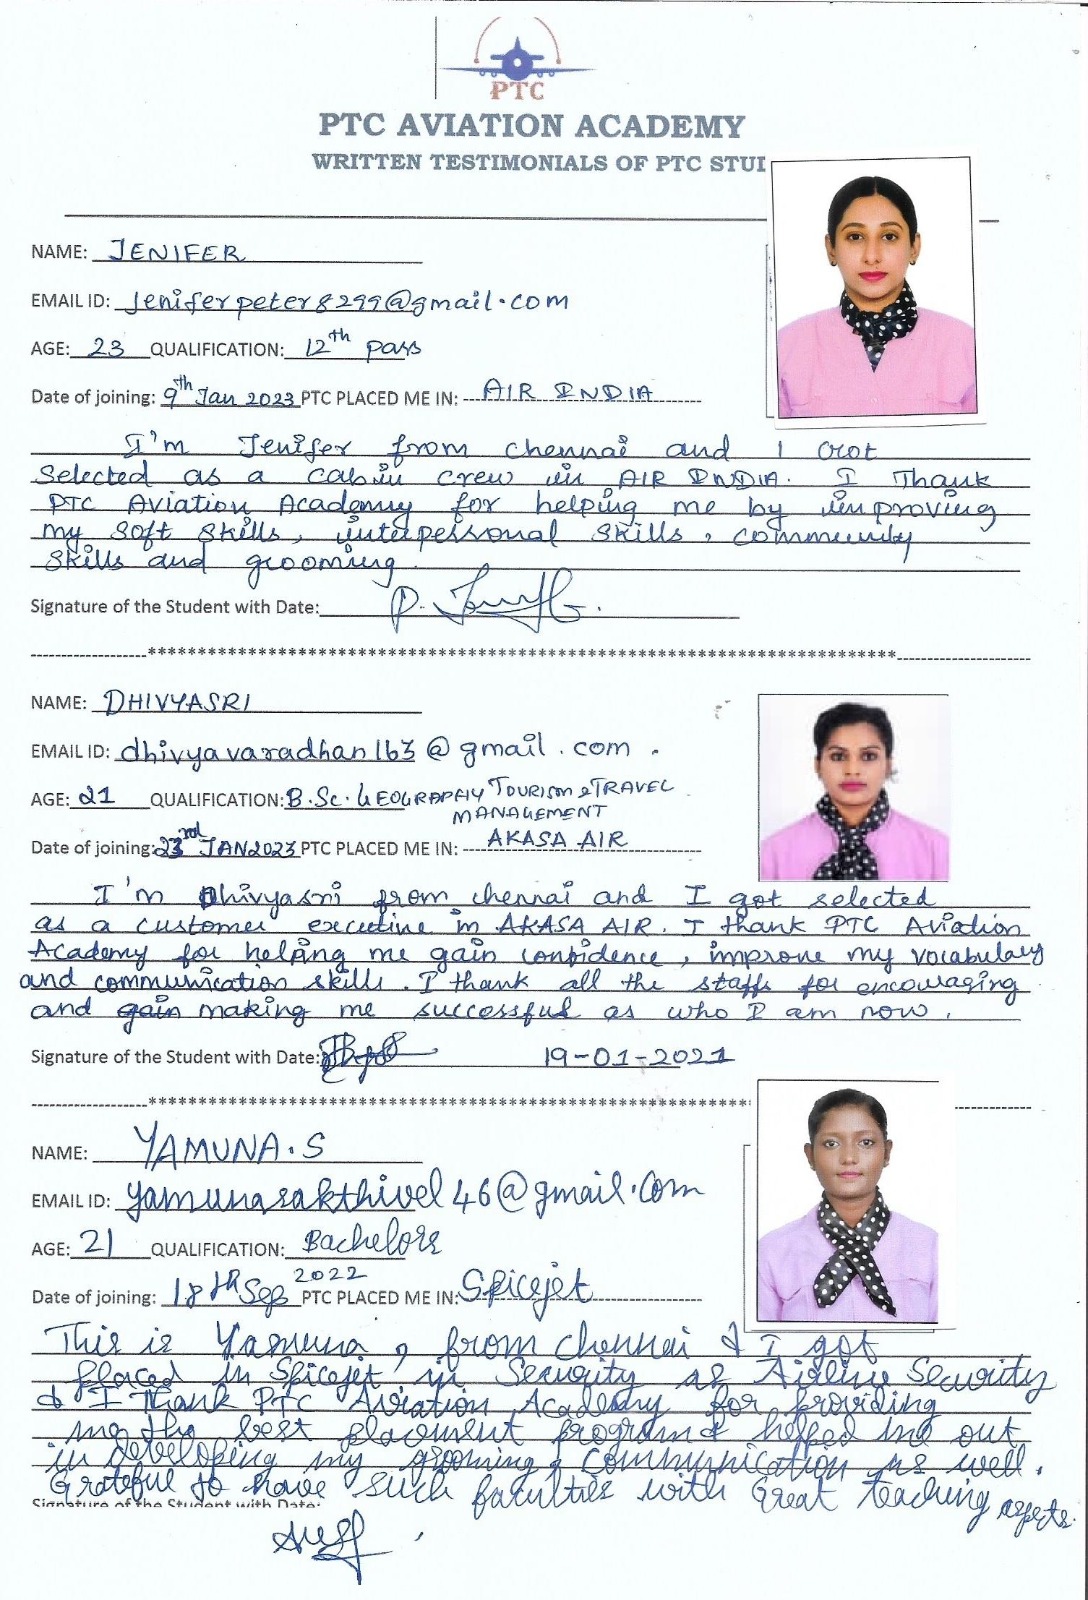 PTC
PTC AVIATION ACADEMY
WRITTEN TESTIMONIALS OF PTC STUI
NAME: JENIFER
EMAIL ID: jeniferpeter8299@gmail.com
AGE: 23 QUALIFICATION: 12th pass
Date of joining: 9th Jan 2023 PTC PLACED ME IN: AIR INDIA
I'm Jenifer from chennai and I Got
Selected as a cabin crew in AIR INDIA. I Thank
PTC Aviation Academy for helping me by improving
my soft skills, interpersonal skills, community
skills and grooming
Signature of the Student with Date:
NAME: DHIVYASRI
EMAIL ID: dhivyavaradhan163@gmail.com.
AGE: 21 QUALIFICATION: B.Sc. GEOGRAPHY TOURISM & TRAVEL
MANAGEMENT
Date of joining: 23rd JAN 2023 PTC PLACED ME IN: AKASA AIR
I'm Dhivyasri from chennai and I got selected
as a customer executive in AKASA AIR. I thank PTC Aviation
Academy for helping me gain confidence, improve my vocabulary
and communication skills. I thank all the staffs for encouraging
and gain making me successful as who I am now.
Signature of the Student with Date: 19-01-2021
NAME: YAMUNA.S
EMAIL ID: yamunasakthivel46@gmail.com
AGE: 21 QUALIFICATION: Bachelors
Date of joining: 18th Sep 2022 PTC PLACED ME IN: Spicejet
This is Yamuna, from chennai & I got
placed in Spicejet in Security as Airline Security
& I Thank PTC Aviation Academy for providing
me the best placement program & helped me out
in developing my grooming & Communication as well.
Grateful to have such faculties with Great teaching
Signature of the Student with Date: